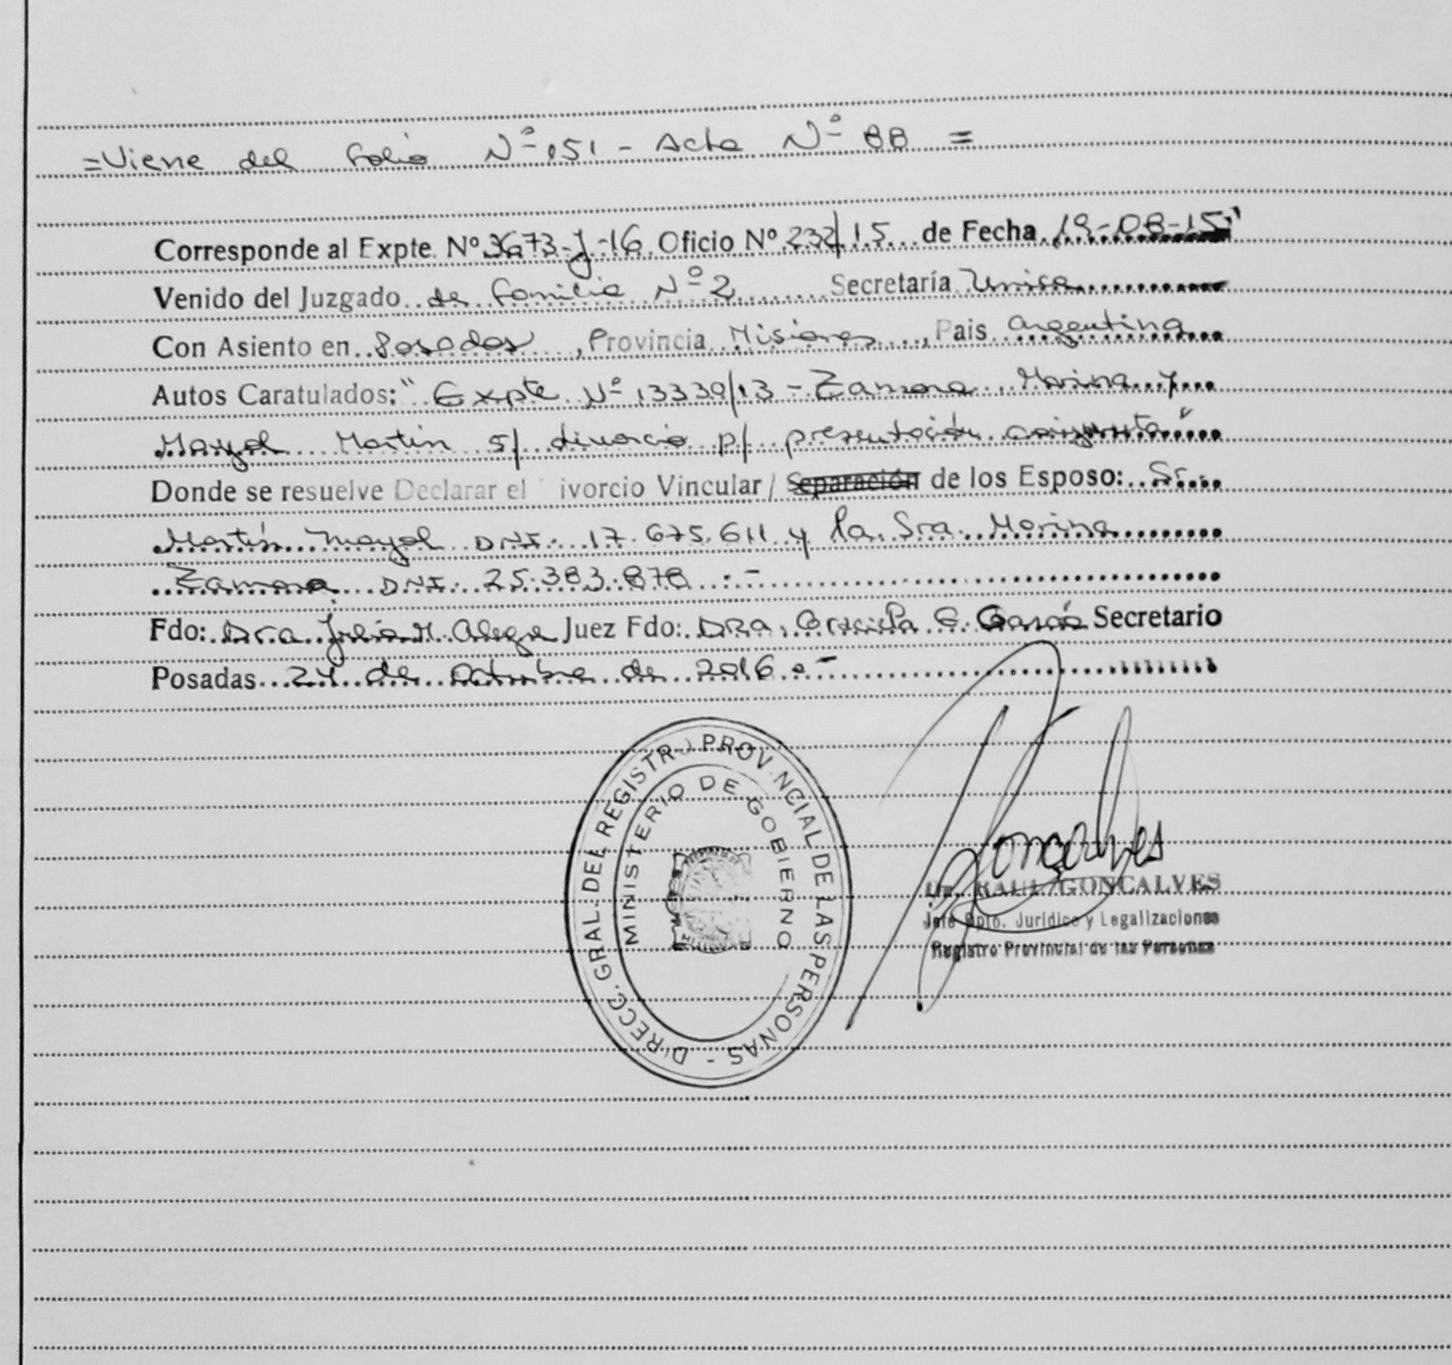 =Viene del folio Nº 151 - Acta Nº 88 =
Corresponde al Expte. Nº 3673-J-16. Oficio Nº 232/15 de Fecha 19-08-15
Venido del Juzgado de Familia Nº 2 Secretaría Unica
Con Asiento en Posadas, Provincia Misiones, Pais Argentina
Autos Caratulados: "Expte Nº 13330/13 - Zamora Marina y
Mayol Martín s/ divorcio p/ presentación conjunta"
Donde se resuelve Declarar el ivorcio Vincular / Separación de los Esposo: Sr.
Martín Mayol DNI: 17.675.611 y la Sra. Marina
Zamora DNI: 25.383.878 .-
Fdo: Dra Julia M. Alegre Juez Fdo: DRa. Graciela G. García Secretario
Posadas 24 de Octubre de 2016.-
DIRECC. GRAL. DEL REGISTRO PROVINCIAL DE LAS PERSONAS -
MINISTERIO DE GOBIERNO
Goncalves
Dr. RAUL GONCALVES
Jefe Dpto. Jurídico y Legalizaciones
Registro Provincial de las Personas